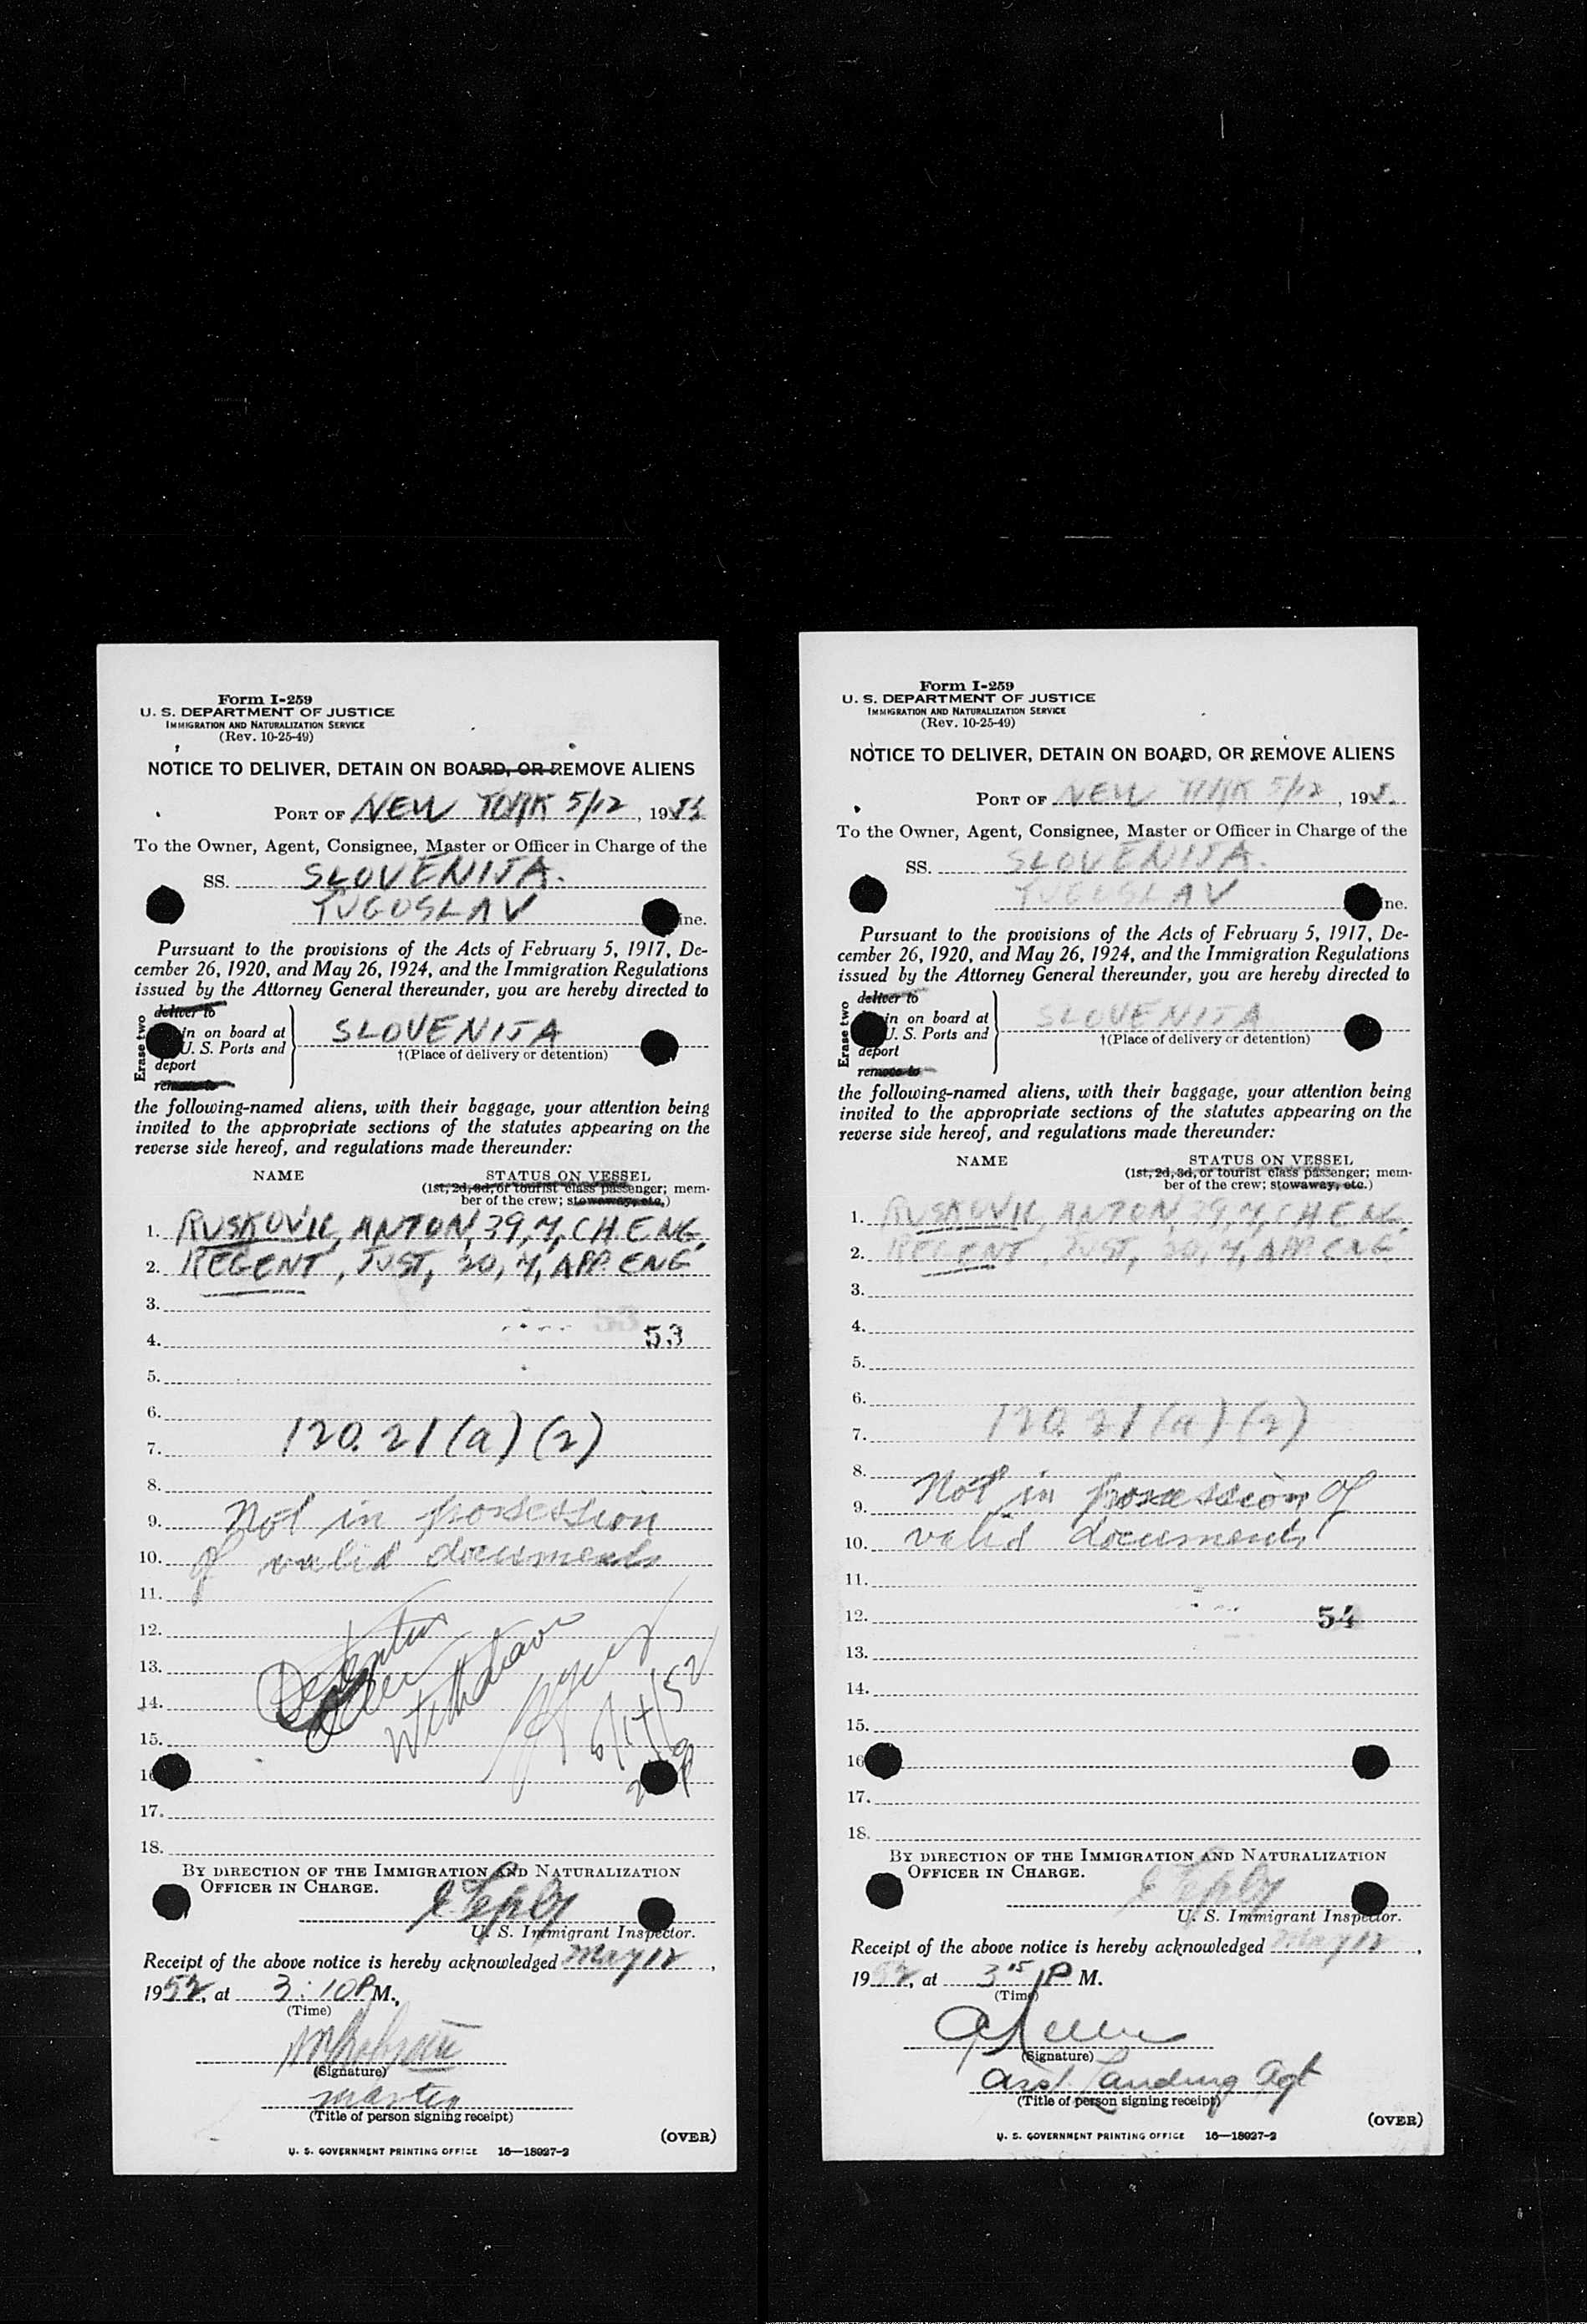 Form I-259
U. S. DEPARTMENT OF JUSTICE
IMMIGRATION AND NATURALIZATION SERVICE
(Rev. 10-25-49)
NOTICE TO DELIVER, DETAIN ON BOARD, OR REMOVE ALIENS
PORT OF NEW YORK 5/12, 19
To the Owner, Agent, Consignee, Master or Officer in Charge of the
SS. SLOVENIJA.
YUGOSLAV ine.
Pursuant to the provisions of the Acts of February 5, 1917, De-
cember 26, 1920, and May 26, 1924, and the Immigration Regulations
issued by the Attorney General thereunder, you are hereby directed to
Erase two
deliver to
in on board at
U. S. Ports and
deport
remove to
SLOVENIJA
†(Place of delivery or detention)
the following-named aliens, with their baggage, your attention being
invited to the appropriate sections of the statutes appearing on the
reverse side hereof, and regulations made thereunder:
NAME STATUS ON VESSEL
(1st, 2d, 3d, or tourist class passenger; mem-
ber of the crew; stowaway, etc.)
1. RUSKOVIC, ANTON, 39, Y, CH. ENG.
2. REGENT, JUST, 20, Y, APP. ENG
3.
4. 53
5.
6.
7. 120.21(a)(2)
8.
9. Not in possession
10. of valid documents
11.
12.
13. Detention
14. Order
15. Withdrawn
16
17.
18.
BY DIRECTION OF THE IMMIGRATION AND NATURALIZATION
OFFICER IN CHARGE.
U. S. Immigrant Inspector.
Receipt of the above notice is hereby acknowledged May 12,
1952, at 3:10 P M.,
(Time)
(Signature)
master
(Title of person signing receipt)
(OVER)
U. S. GOVERNMENT PRINTING OFFICE 16—18927-2
Form I-259
U. S. DEPARTMENT OF JUSTICE
IMMIGRATION AND NATURALIZATION SERVICE
(Rev. 10-25-49)
NOTICE TO DELIVER, DETAIN ON BOARD, OR REMOVE ALIENS
PORT OF NEW YORK 5/12, 195
To the Owner, Agent, Consignee, Master or Officer in Charge of the
SS. SLOVENIJA.
YUGOSLAV ine.
Pursuant to the provisions of the Acts of February 5, 1917, De-
cember 26, 1920, and May 26, 1924, and the Immigration Regulations
issued by the Attorney General thereunder, you are hereby directed to
Erase two
deliver to
in on board at
U. S. Ports and
deport
remove to
SLOVENIJA
†(Place of delivery or detention)
the following-named aliens, with their baggage, your attention being
invited to the appropriate sections of the statutes appearing on the
reverse side hereof, and regulations made thereunder:
NAME STATUS ON VESSEL
(1st, 2d, 3d, or tourist class passenger; mem-
ber of the crew; stowaway, etc.)
1. RUSKOVIC, ANTON, 39, Y, CH. ENG.
2. REGENT, JUST, 20, Y, APP. ENG
3.
4.
5.
6.
7. 120.21(a)(2)
8.
9. Not in possession of
10. valid documents
11.
12. 54
13.
14.
15.
16
17.
18.
BY DIRECTION OF THE IMMIGRATION AND NATURALIZATION
OFFICER IN CHARGE.
U. S. Immigrant Inspector.
Receipt of the above notice is hereby acknowledged May 12,
1952, at 3 15 P M.
(Time)
(Signature)
Asst. Landing Agt
(Title of person signing receipt)
(OVER)
U. S. GOVERNMENT PRINTING OFFICE 16—18927-2